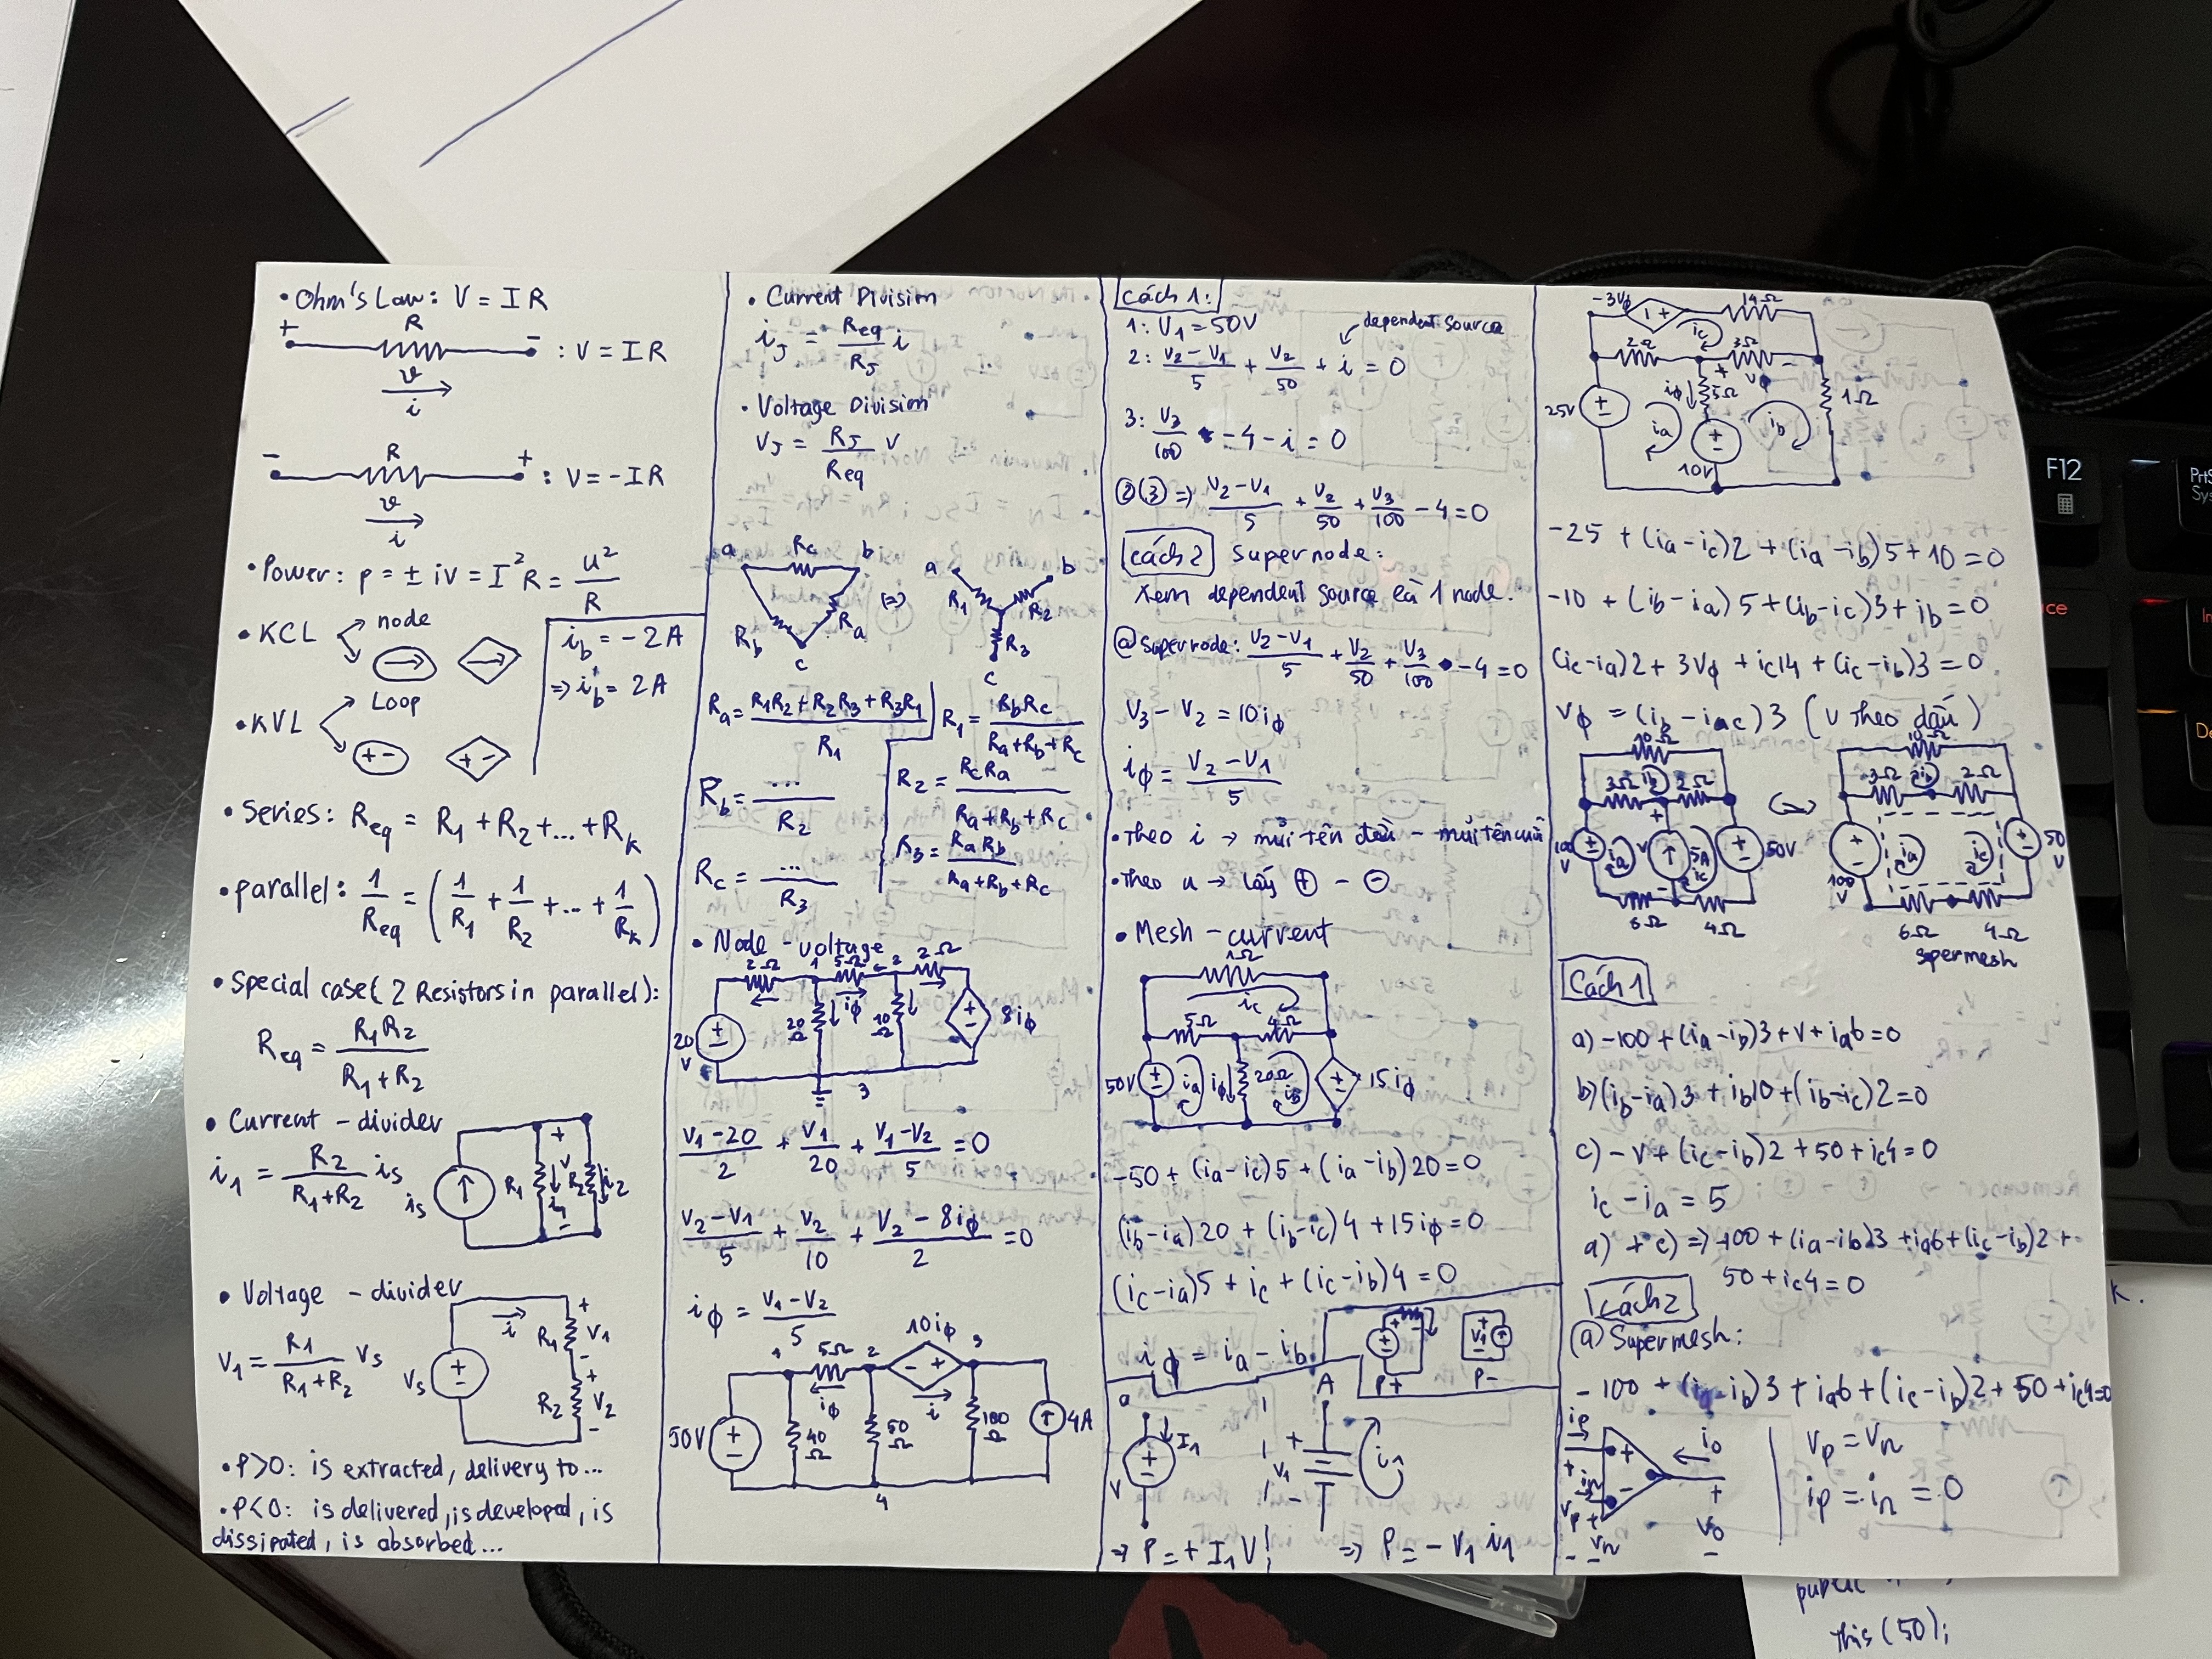 • Ohm's Law: V = IR
+ R − : V = IR
v
i
− R + : V = −IR
v
i
• Power: p = ± iv = I²R = u²/R
• KCL node
• KVL Loop
i_b = −2A
⇒ i_b = 2A
• Series: Req = R1 + R2 + ... + Rk
• parallel: 1/Req = (1/R1 + 1/R2 + ... + 1/Rk)
• Special case (2 Resistors in parallel):
Req = R1R2/(R1+R2)
• Current – divider
i1 = R2/(R1+R2) is
is R1 i1 + v − R2 i2
• Voltage – divider
V1 = R1/(R1+R2) Vs
Vs i R1 + V1 − R2 + V2 −
• P>0: is extracted, delivery to...
• P<0: is delivered, is developed, is
dissipated, is absorbed...
• Current Division
iJ = Req/RJ i
• Voltage Division
VJ = RJ/Req V
a Rc b Rb Ra c
(=>)
a R1 b R2 R3 c
Ra = (R1R2 + R2R3 + R3R1)/R1
Rb = .../R2
Rc = .../R3
R1 = RbRc/(Ra+Rb+Rc)
R2 = RcRa/(Ra+Rb+Rc)
R3 = RaRb/(Ra+Rb+Rc)
• Node – voltage
2Ω 1 5Ω 2 2Ω
20V 20Ω iφ 10Ω 8iφ
3
(V1−20)/2 + V1/20 + (V1−V2)/5 = 0
(V2−V1)/5 + V2/10 + (V2 − 8iφ)/2 = 0
iφ = (V1−V2)/5
1 5Ω 2 10iφ 3
50V 40Ω iφ 50Ω i 100Ω 4A
4
Cách 1:
1: V1 = 50V
dependent source
2: (V2−V1)/5 + V2/50 + i = 0
3: V3/100 −4 − i = 0
②③ => (V2−V1)/5 + V2/50 + V3/100 − 4 = 0
Cách 2 supernode:
Xem dependent source là 1 node.
@ supernode: (V2−V1)/5 + V2/50 + V3/100 − 4 = 0
V3 − V2 = 10iφ
iφ = (V2−V1)/5
• Theo i → mũi tên đầu – mũi tên cuối
• Theo u → lấy ⊕ − ⊖
• Mesh – current
1Ω
ic
5Ω 4Ω
50V ia iφ 20Ω ib 15iφ
−50 + (ia−ic)5 + (ia−ib)20 = 0
(ib−ia)20 + (ib−ic)4 + 15iφ = 0
(ic−ia)5 + ic + (ic−ib)4 = 0
iφ = ia − ib
P+ P−
V1
a I1 V
A + V1 − i1
⇒ P = + I1V
⇒ P = − V1 i1
−3Vφ 14Ω
ic
2Ω 3Ω
25V ia iφ 5Ω ib 1Ω
10V
−25 + (ia−ic)2 + (ia−ib)5 + 10 = 0
−10 + (ib−ia)5 + (ib−ic)3 + ib = 0
(ic−ia)2 + 3Vφ + ic14 + (ic−ib)3 = 0
(V theo dấu)
10Ω
3Ω ib 2Ω
100V ia v 5A ic 50V
6Ω 4Ω
10Ω
3Ω ib 2Ω
100V ia ic 50V
6Ω 4Ω
spermesh
Cách 1
a) −100 + (ia−ib)3 + v + ia6 = 0
b) (ib−ia)3 + ib10 + (ib−ic)2 = 0
c) −v + (ic−ib)2 + 50 + ic4 = 0
ic − ia = 5
a) + c) => −100 + (ia−ib)3 + ia6 + (ic−ib)2 +
50 + ic4 = 0
Cách 2
@ Supermesh:
−100 + (ia−ib)3 + ia6 + (ic−ib)2 + 50 + ic4=0
ip in io
vp vn Vo
Vp = Vn
ip = in = 0
F12
k.
public
this(50);